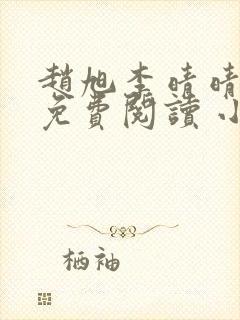 趙旭李晴晴
免費閱讀小
栖袖